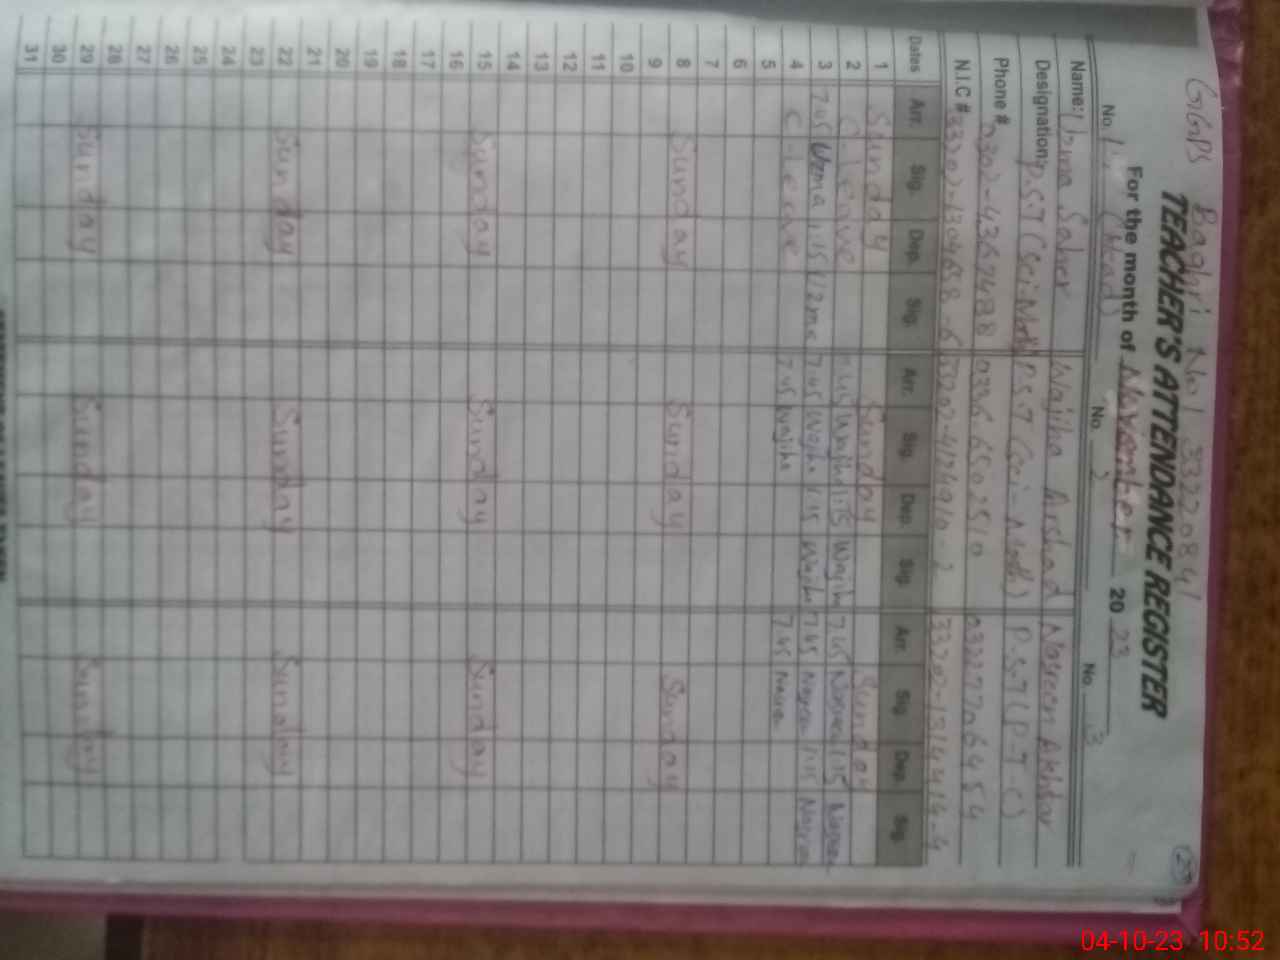 GGPS Baghri No1 33220841
TEACHER'S ATTENDANCE REGISTER
For the month of November 2023
No. 1. (Head) No. 2 No. 3
Name: Uzma Saher Wajiha Arshad Nasreen Akhtar
Designation: P.S.T (Sci-Math) P.S.T (Sci-Math) P.S.T (P.T.C)
Phone # 0302-4367488 0336 6502510 03227706454
N.I.C #
Dates Arr. Sig. Dep. Sig. Arr. Sig. Dep. Sig. Arr. Sig. Dep. Sig.
1 Sunday Sunday Sunday
2 C-Leave 7:45 Wajiha 1:15 Wajiha 7:45 Nasreen 1:15 Nasreen
3 7:45 Uzma 1:15 Uzma 7:45 Wajiha 1:15 Wajiha 7:45 Nasreen 1:15 Nasreen
4 C-Leave 7:45 Wajiha 7:45 Nasreen
5
6
7
8 Sunday Sunday Sunday
9
10
11
12
13
14
15 Sunday Sunday Sunday
16
17
18
19
20
21
22 Sunday Sunday Sunday
23
24
25
26
27
28
29 Sunday Sunday Sunday
30
31
04-10-23 10:52